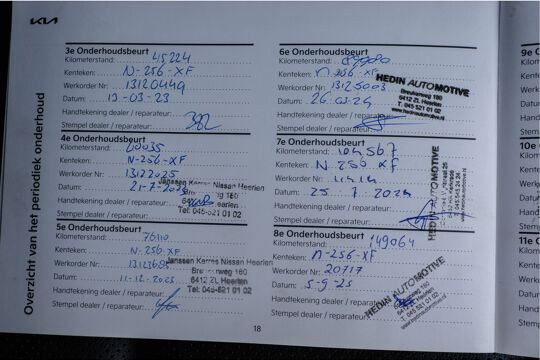 KIA
Overzicht van het periodiek onderhoud
3e Onderhoudsbeurt
Kilometerstand: 45224
Kenteken: N-256-XF
Werkorder Nr: 13120449
Datum: 13-03-23
Handtekening dealer / reparateur:
Stempel dealer / reparateur: 382
4e Onderhoudsbeurt
Kilometerstand: 60035
Kenteken: N-256-XF
Werkorder Nr: 13122025
Datum: 21-7-2023
Handtekening dealer / reparateur:
Stempel dealer / reparateur:
Janssen Kerres Nissan Heerlen
6412 ZL Heerlen
Tel: 045-521 01 02
5e Onderhoudsbeurt
Kilometerstand: 76110
Kenteken: N-256-XF
Werkorder Nr:
Datum: 11-12-2023
Handtekening dealer / reparateur:
Stempel dealer / reparateur:
Janssen Kerres Nissan Heerlen
6412 ZL Heerlen
Tel: 045-521 01 02
6e Onderhoudsbeurt
Kilometerstand:
Kenteken: N-256-XF
Werkorder Nr: 13125003
Datum: 26-03-24
Handtekening dealer / reparateur:
Stempel dealer / reparateur:
HEDIN AUTOMOTIVE
6412 ZL Heerlen
T. 045 521 01 02
www.hedinautomotive.nl
7e Onderhoudsbeurt
Kilometerstand: 104567
Kenteken: N 256 XF
Werkorder Nr:
Datum: 25 . 7 . 2024
Handtekening dealer / reparateur:
Stempel dealer / reparateur:
HEDIN AUTOMOTIVE
8e Onderhoudsbeurt
Kilometerstand: 149064
Kenteken: N-256-XF
Werkorder Nr: 20717
Datum: 5-9-25
Handtekening dealer / reparateur:
Stempel dealer / reparateur:
HEDIN AUTOMOTIVE
6412 ZL Heerlen
T. 045 521 01 02
www.hedinautomotive.nl
18
9e
Kilo
Kent
Werk
Datu
Hand
Stem
10e
Kilom
Kent
Werk
Datu
Hand
Stem
11e
Kilom
Kent
Werk
Datu
Hand
Stem